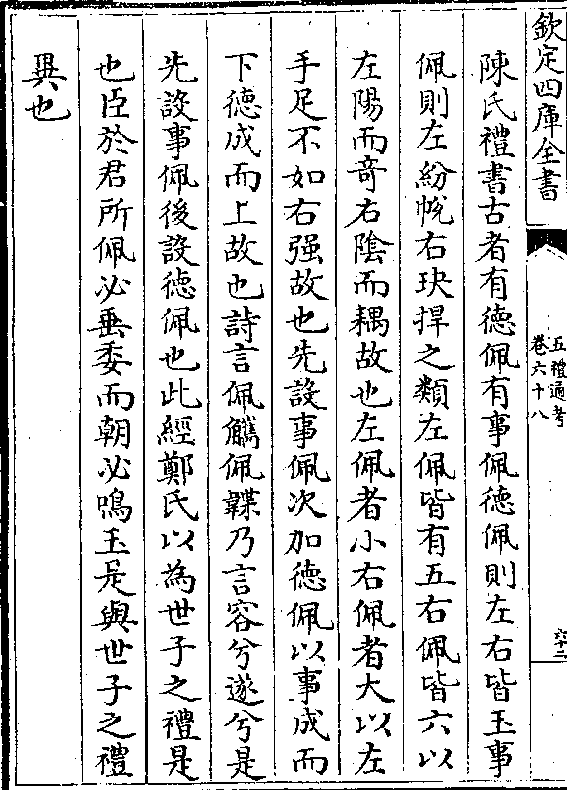 欽定四庫全書
五禮通考
卷六十八
六十二
陳氏禮書古者有德佩有事佩德佩則左右皆玉事
佩則左紛帨右玦捍之類左佩皆有五右佩皆六以
左陽而奇右陰而耦故也左佩者小右佩者大以左
手足不如右强故也先設事佩次加德佩以事成而
下德成而上故也詩言佩觿佩韘乃言容兮遂兮是
先設事佩後設德佩也此經鄭氏以為世子之禮是
也臣於君所佩必垂委而朝必鳴玉是與世子之禮
異也